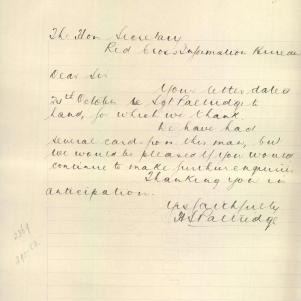 The Hon Secretary
Red Cross Information Bureau
Dear Sir
Your letter dated
21st October re Sgt Palridge to
hand, for which we thank.
We have had
several cards from this man, but
we would be pleased if you would
continue to make further enquiries
Thanking you in
anticipation.
Yrs faithfully